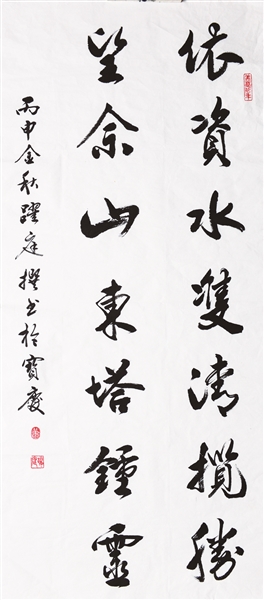 依資水雙清攬勝
望佘山東塔鍾靈
丙申金秋躍庭撰书於寶慶